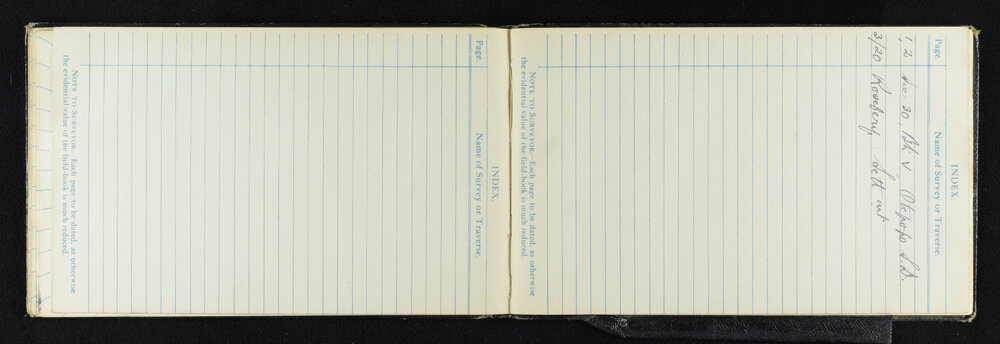 INDEX.
Page. Name of Survey or Traverse.
1, 2 Sec 30, Blk V, Otepopo S.D.
3/20 Rosebery Settlmt
NOTE TO SURVEYOR.—Each page to be dated, as otherwise
the evidential value of the field-book is much reduced.
INDEX.
Page. Name of Survey or Traverse.
NOTE TO SURVEYOR.—Each page to be dated, as otherwise
the evidential value of the field-book is much reduced.